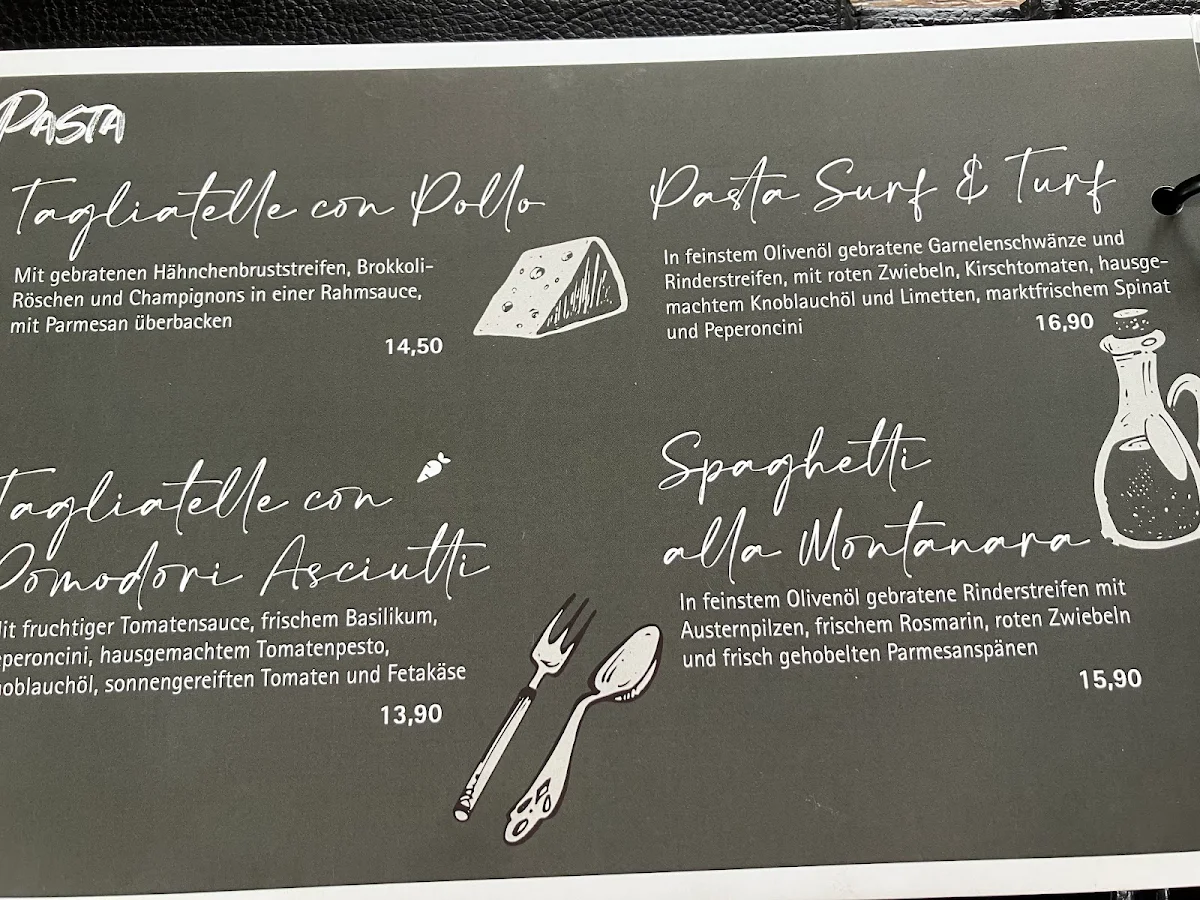 PASTA
Tagliatelle con Pollo
Mit gebratenen Hähnchenbruststreifen, Brokkoli-
Röschen und Champignons in einer Rahmsauce,
mit Parmesan überbacken
14,50
Tagliatelle con
Pomodori Asciutti
fruchtiger Tomatensauce, frischem Basilikum,
hausgemachtem Tomatenpesto,
sonnengereiften Tomaten und Fetakäse
13,90
Pasta Surf & Turf
In feinstem Olivenöl gebratene Garnelenschwänze und
Rinderstreifen, mit roten Zwiebeln, Kirschtomaten, hausge-
machtem Knoblauchöl und Limetten, marktfrischem Spinat
und Peperoncini
16,90
Spaghetti
alla Montanara
In feinstem Olivenöl gebratene Rinderstreifen mit
Austernpilzen, frischem Rosmarin, roten Zwiebeln
und frisch gehobelten Parmesanspänen
15,90